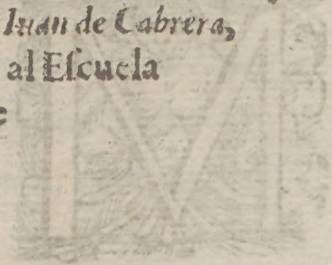 Iuan de Cabrera,
al Eſcuela